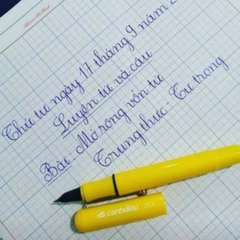 Thứ tư ngày 17 tháng 9 năm 2
Luyện từ và câu
Bài: Mở rộng vốn từ
Trung thực - Tự trọng